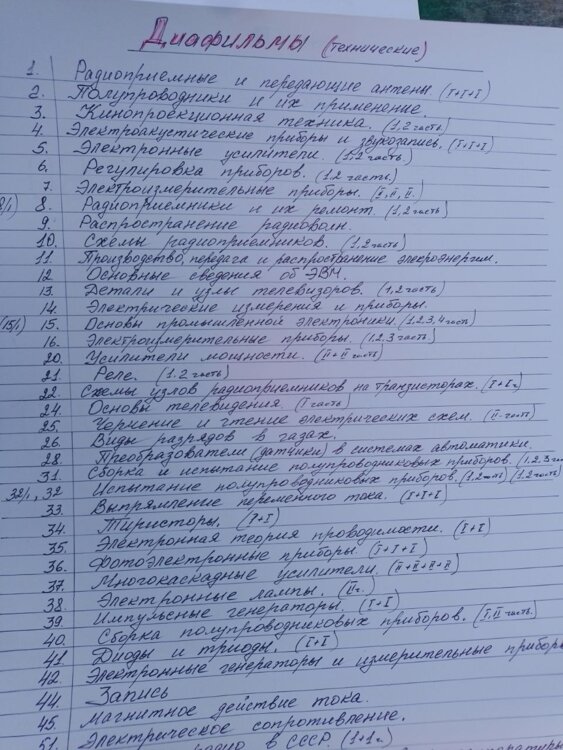 Диафильмы (технические)
1. Радиоприемные и передающие антены (I+I+I)
2. Полупроводники и их применение.
3. Кинопроекционная техника. (1,2 часть)
4. Электроакустические приборы и звукозапись. (I+I+I)
5. Электронные усилители. (1,2 часть)
6. Регулировка приборов. (1,2 часть.)
7. Электроизмерительные приборы. (I, II, II.)
8/1) 8. Радиоприемники и их ремонт (1,2 часть)
9. Распространение радиоволн.
10. Схемы радиоприемников. (1,2 часть)
11. Производство, передача и распространение элекроэнергии.
12. Основные сведения об ЭВМ.
13. Детали и узлы телевизоров. (1,2 часть)
14. Электрические измерения и приборы.
(15/1) 15. Основы промышленной электроники. (1,2,3,4 часть)
16. Электроизмерительные приборы. (1,2,3 часть)
20. Усилители мощности. (II+II часть)
21. Реле. (1.2 часть)
22. Схемы узлов радиоприемников на транзисторах. (I+I ч)
24. Основы телевидения. (I часть)
25. Черчение и чтение электрических схем. (II-часть)
26. Виды разрядов в газах.
28. Преобразователи (датчики) в системах автоматики.
31. Сборка и испытание полупроводниковых приборов. (1,2,3
32/1, 32 Испытание полупроводниковых приборов. (1,2 част) (1,2 часть)
33. Выпрямление переменного тока. (I+I+I)
34. Тиристоры. (I+I)
35. Электронная теория проводимости. (I+I)
36. Фотоэлектронные приборы (I+I+I)
37. Многокаскадные усилители. (II+II+II+II)
38. Электронные лампы. (IIч.)
39 Импульсные генераторы. (I+I)
40. Сборка полупроводниковых приборов. (I, II часть.)
41 Диоды и триоды. (I+I)
42. Электронные генераторы и измерительные приборы
44. Запись
45. Магнитное действие тока.
51. Электрическое сопротивление.
радио в СССР. (1+1ч)